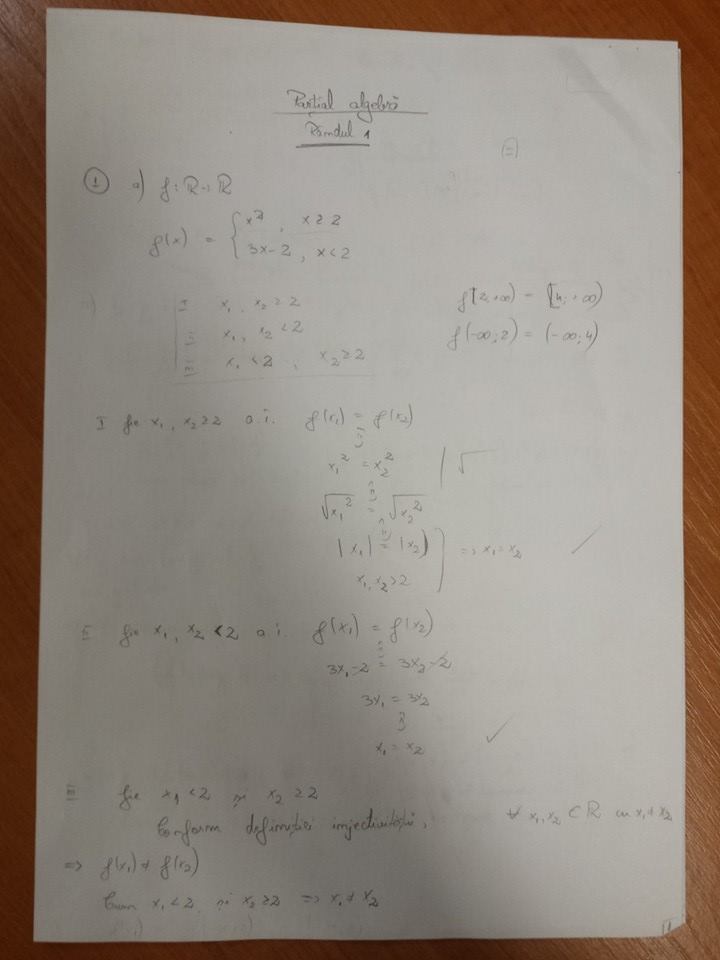 Parțial algebră
Rândul 1
(=)
① a) f: ℝ→ℝ
f(x) = { x², x ≥ 2
3x-2, x < 2
I x₁, x₂ ≥ 2
II x₁, x₂ < 2
III x₁ < 2, x₂ ≥ 2
f([2; +∞) = [4; +∞)
f(-∞; 2) = (-∞; 4)
I fie x₁, x₂ ≥ 2 a.î. f(x₁) = f(x₂)
x₁² = x₂² | √
√x₁² = √x₂²
|x₁| = |x₂|
x₁, x₂ > 2 } => x₁ = x₂ ✓
II fie x₁, x₂ < 2 a.î. f(x₁) = f(x₂)
3x₁-2 = 3x₂-2
3x₁ = 3x₂
x₁ = x₂ ✓
III fie x₁ < 2 și x₂ ≥ 2
Conform definiției injectivității, ∀ x₁, x₂ ⊂ ℝ cu x₁ ≠ x₂
=> f(x₁) ≠ f(x₂)
Cum x₁ < 2 și x₂ ≥ 2 => x₁ ≠ x₂